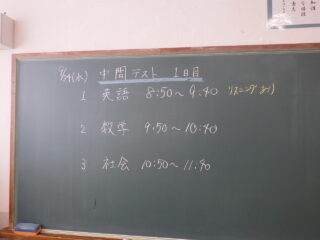 中間テスト 1日目
1 英語 8:50～9:40 リスニングあり
2 数学 9:50～10:40
3 社会 10:50～11:40